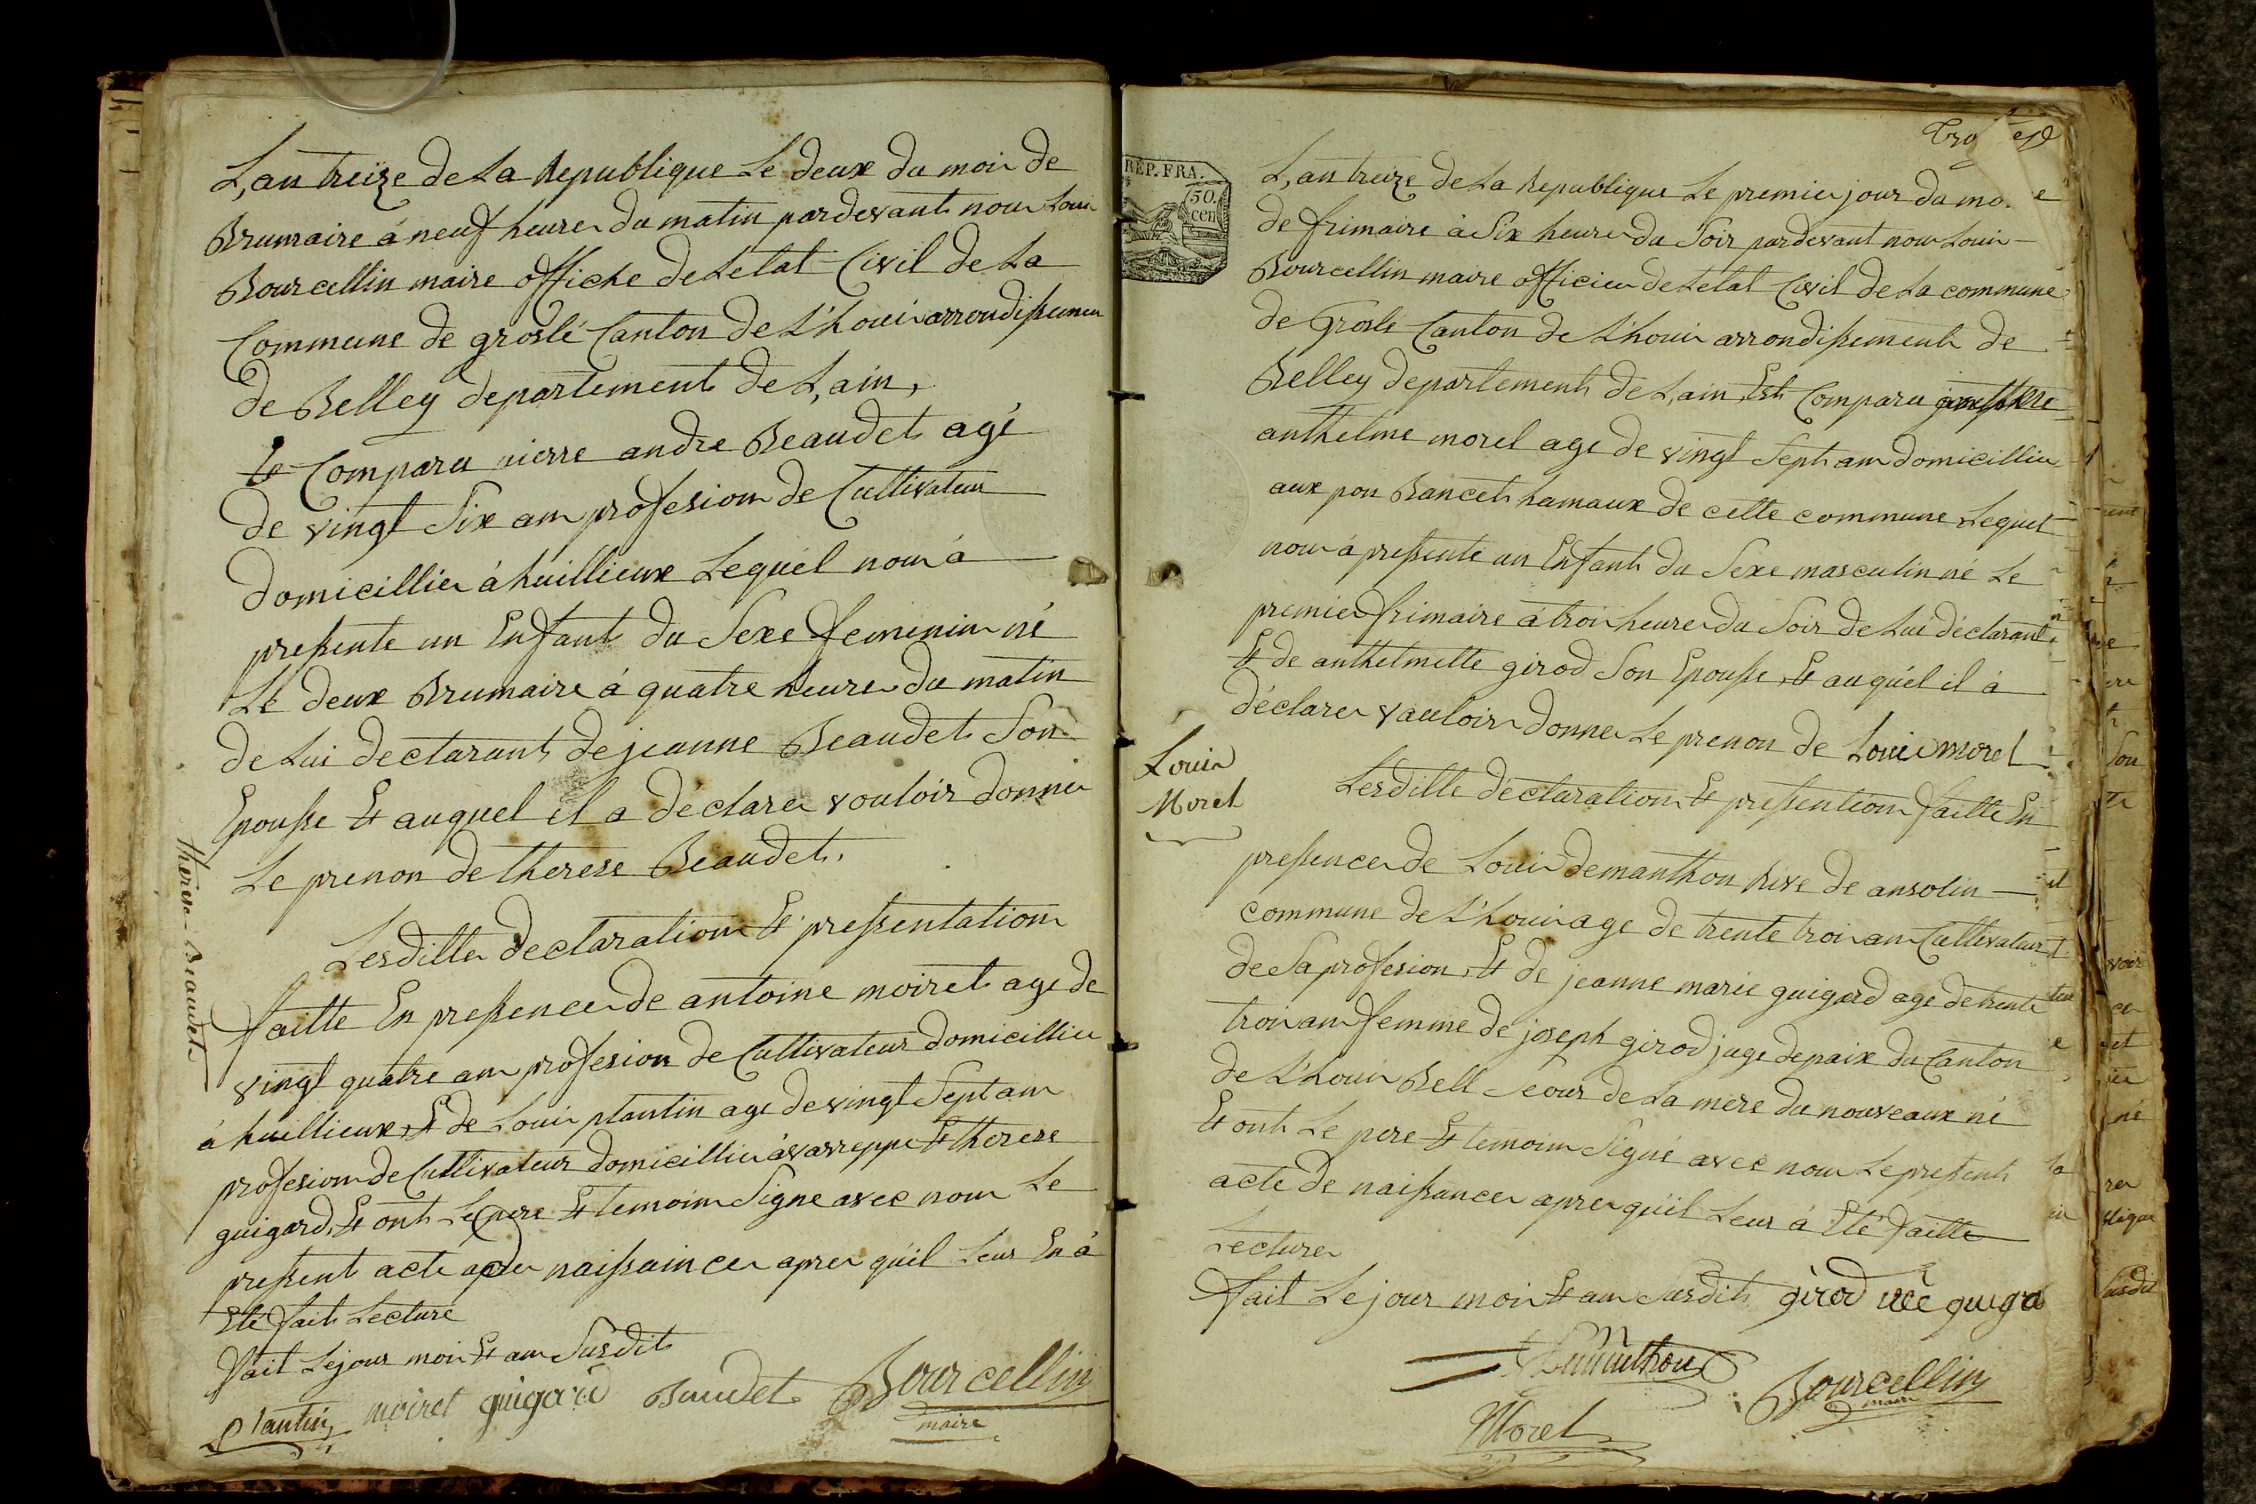 L,an treize de La Republique Le deux du mois de
Brumaire á neuf heures du matin pardevant nous Louis
Bourcellin maire officie de Letat Civil de La
Commune de groslé Canton de L'houis arrondissemen
de Belley departement de L,ain,
Et Comparu pierre andre Beaudet agé
de vingt Six ans profesion de Cultivateur
domicillier á huillieux Lequel nous á
pressente un Enfant du Sexe feminin né
Le deux Brumaire á quatre heures du matin
de Lui declarant de jeanne Beaudet Son
Epousse Et auquel il a déclarer vouloir donner
Le prenon de therese Beaudet.
therese Beaudet
Lesditte declaration Et pressentation
faitte En pressence de antoine moiret age de
vingt quatre ans profesion de Cultivateur domicillier
á huillieux, Et de Louis plantin age de vingt Sept ans
profesion de Cultivateur domicillier á varreppe Et therese
guigard, Et ont Le pere Et temoins Signe avec nous Le
pressent acte de naissaince apres quil Leur En á
Eté fait Lecture
fait Lejour mois Et an Susdit
Plantin moiret guigard Baudet Bourcellin
maire
REP. FRA.
50.
cen
L,an treize de La Republique Le premier jour du mo e
de frimaire á Six heures du Soir pardevant nous Louis
Bourcellin maire officier de Letat Civil de La commune
de Groslé Canton de L'houis arrondissement de
Belley departement de L,ain, Est Comparu
anthelme morel age de vingt Sept ans domicillier
aux pou Bancet hamaux de cette commune Lequel
nous á pressente un Enfant du Sexe masculin né Le
premier frimaire á trois heures du Soir de Lui déclarant
Et de anthelmette girod Son Epousse, Et auquél il á
déclarer vauloir donner Le prenon de Louis morel
Louis
Morel
Lesditte déclaration Et pressention faitte En
pressence de Louis demanthon Rive de ansolin
commune de L'houis age de trente trois ans Cultivateur
de Sa profesion, Et de jeanne marie guigard age de trente
trois ans femme de joseph girod juge depaix du Canton
de L'houis Bell Seour de La mere du nouveaux né
Et ont Le pere Et temoins Signé avec nous Le pressent
acte de naissance apres qúil Leur á Eté faitte
Lecture
fait Le jour mois Et an Susdit girod née guigra
Demanthon
Bourcellin
maire
Morel